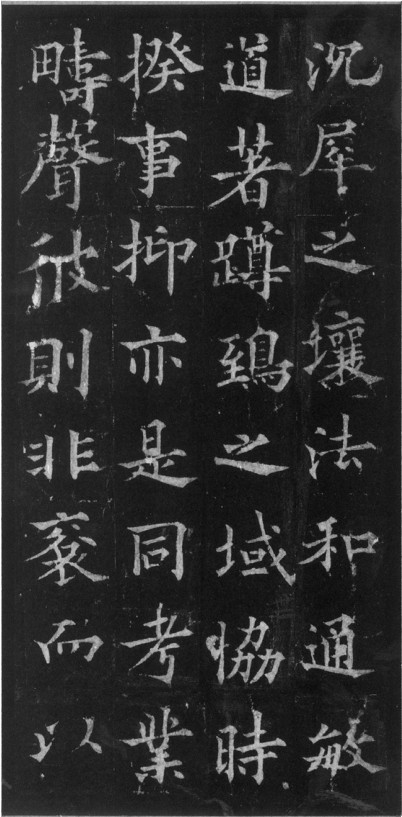 沉犀之壤法和通敏
道著蹲鵄之域協時
揆事抑亦是同考業
疇聲彼則非裒而以